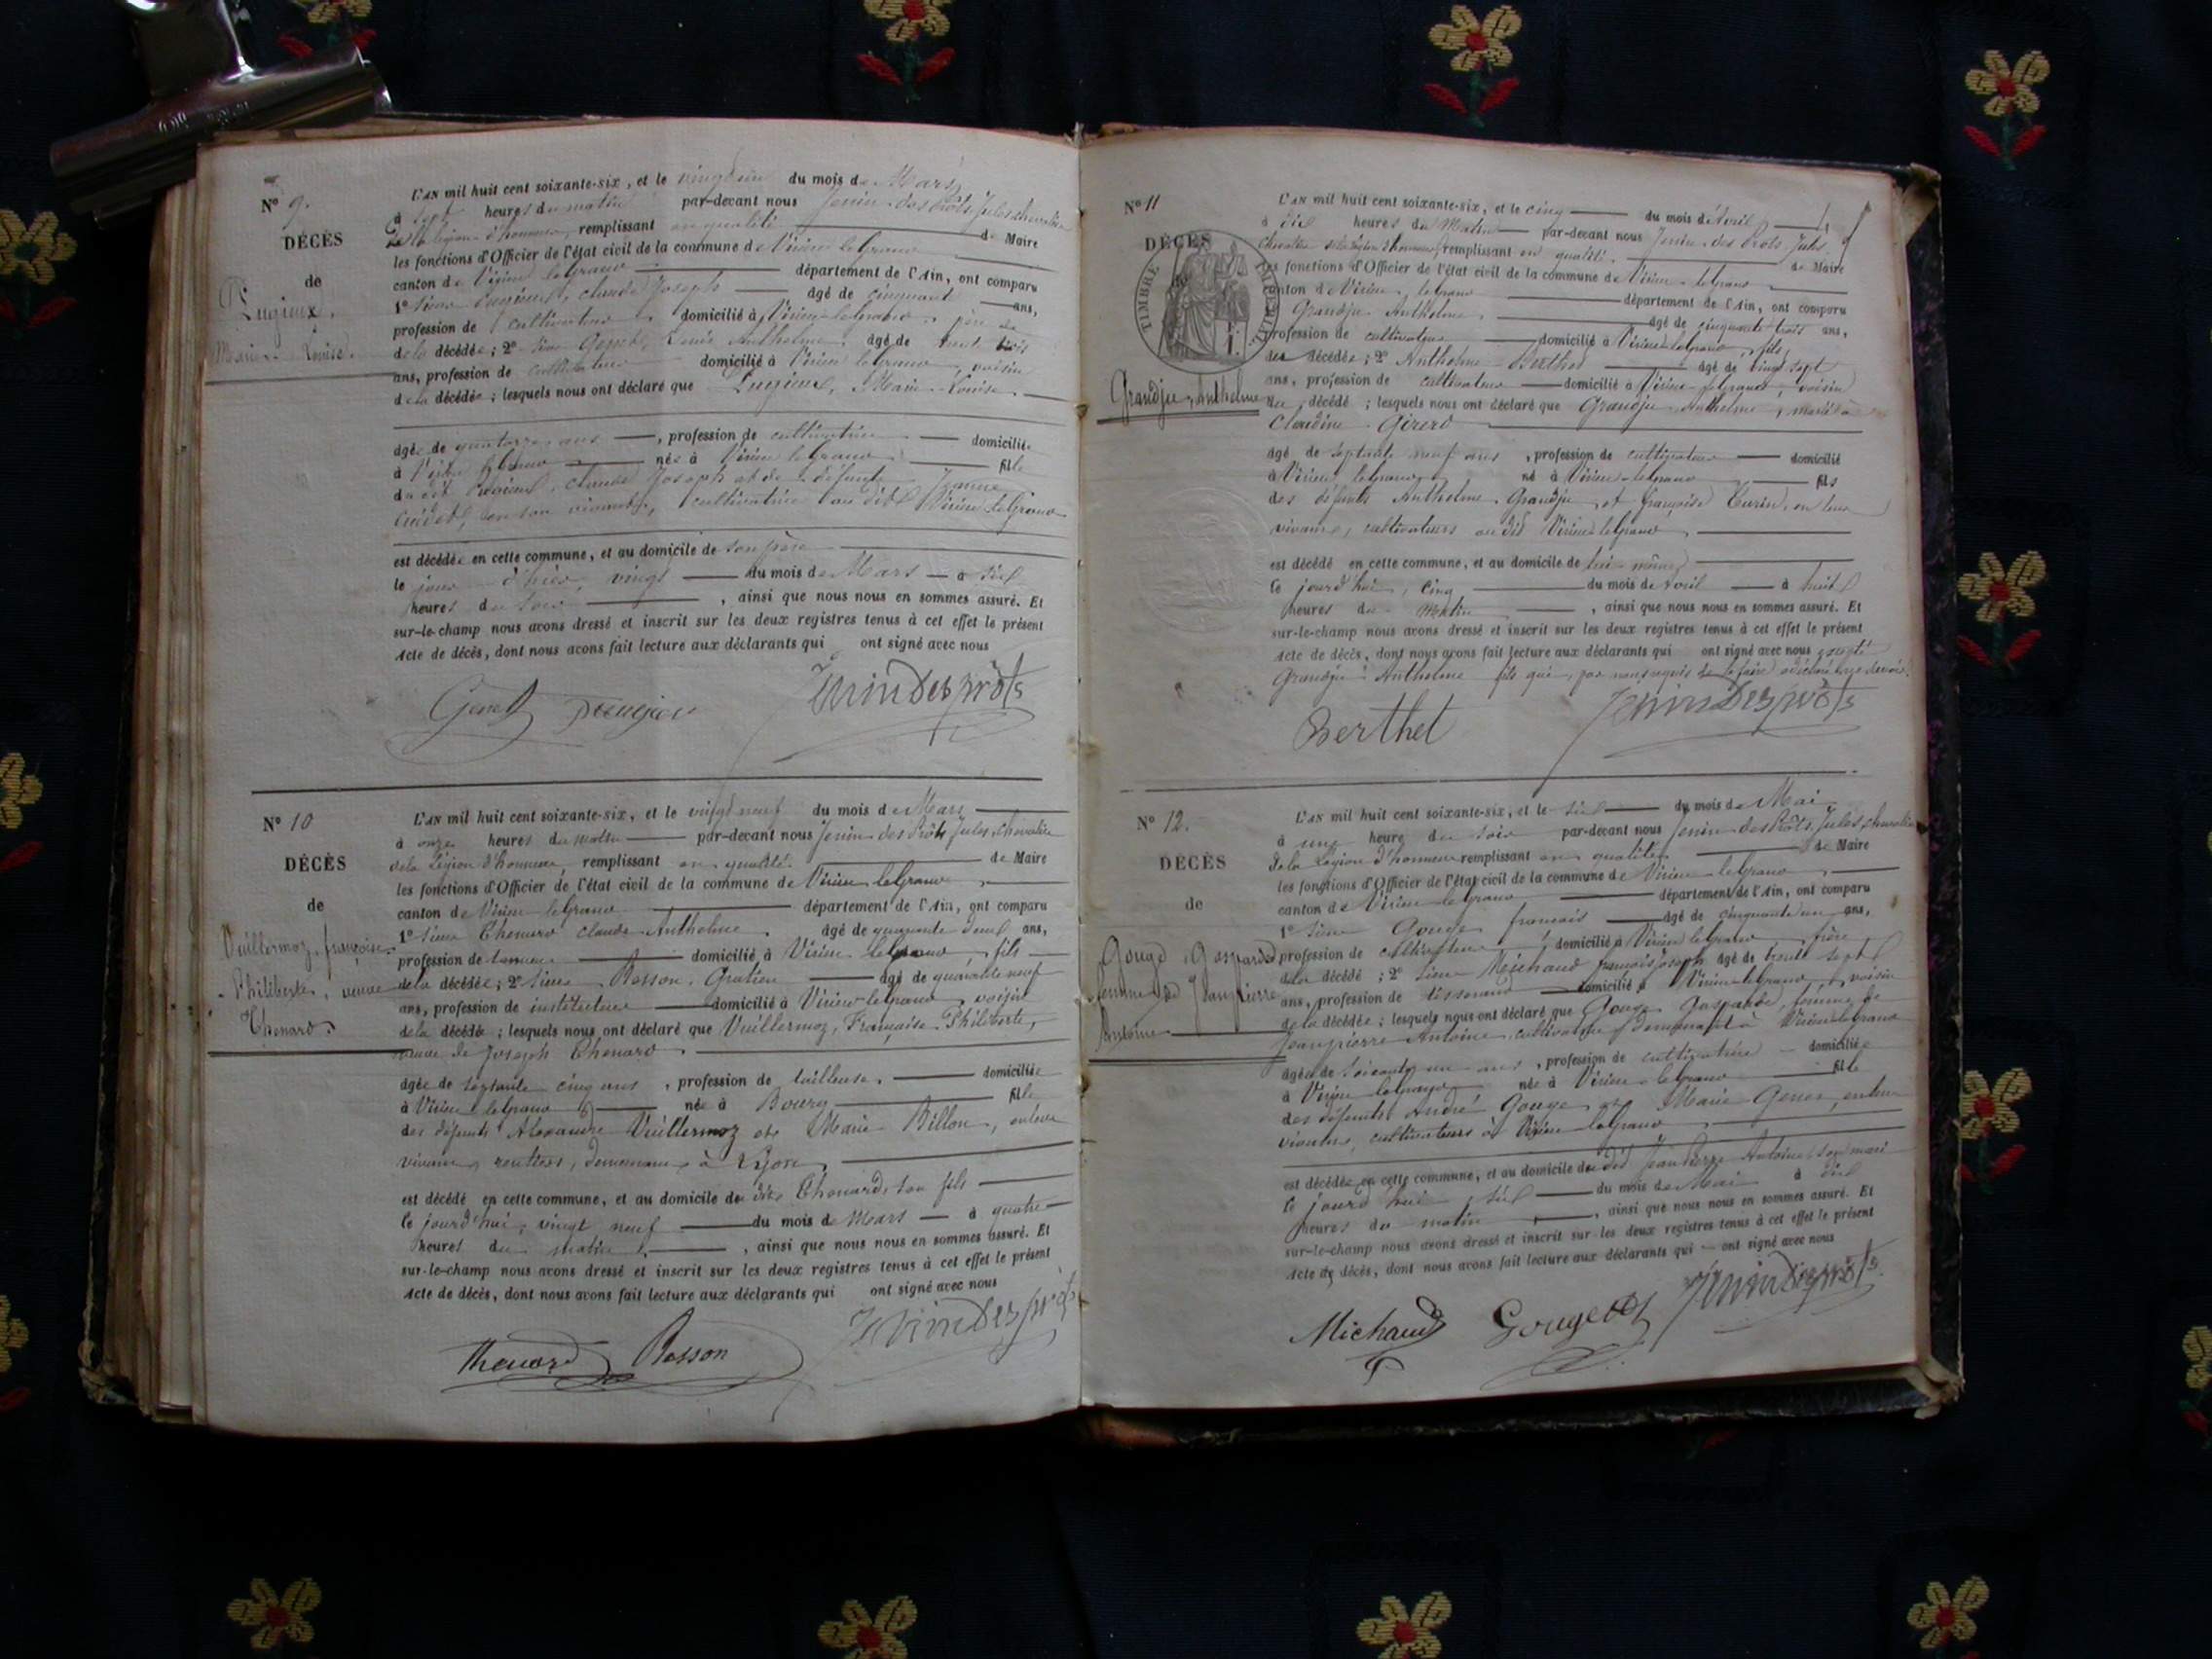 N° 9.
DÉCÈS
de
Pugieux,
Marie-Louise.
L'AN mil huit cent soixante-six, et le vingt un du mois de Mars
à sept heures du matin par-devant nous Jenin-des Prôts, Jules, chevalier
de la légion d'honneur, remplissant en qualité de Maire
les fonctions d'Officier de l'état civil de la commune de Virieu-le-Grand
canton de Virieu-le-Grand département de l'Ain, ont comparu
1° sieur Pugieux, claude Joseph âgé de cinquante ans,
profession de cultivateur domicilié à Virieu-le-Grand, père de
de la décédée; 2° sieur Genet, Louis Anthelme, âgé de trente trois
ans, profession de cultivateur domicilié à Virieu le Grand, voisin
de la décédée; lesquels nous ont déclaré que Pugieux, Marie-Louise
âgée de quatorze ans, profession de cultivatrice domiciliée
à Virieu le Grand née à Virieu le Grand fille
du dit Pugieux, claude Joseph et de défunte Jeanne
en son vivant, cultivatrice au dit Virieu le Grand
est décédée en cette commune, et au domicile de son père
le jour d'hier, vingt du mois de Mars à six
heures du soir, ainsi que nous nous en sommes assuré. Et
sur-le-champ nous avons dressé et inscrit sur les deux registres tenus à cet effet le présent
Acte de décès, dont nous avons fait lecture aux déclarants qui ont signé avec nous
Genet Pugieux Jenin Desprôts
N° 10
DÉCÈS
de
Vuillermoz, françoise
Philiberte, veuve
Thenard.
L'AN mil huit cent soixante-six, et le vingt neuf du mois de Mars
à onze heures du matin par-devant nous Jenin-des Prôts, Jules, chevalier
de la Légion d'honneur, remplissant en qualité de Maire
les fonctions d'Officier de l'état civil de la commune de Virieu le Grand
canton de Virieu-le-Grand département de l'Ain, ont comparu
1° sieur Thenard claude Anthelme, âgé de quarante deux ans,
profession de domicilié à Virieu le Grand, fils
de la décédée; 2° sieur Besson, Gratien âgé de quarante neuf
ans, profession de instituteur domicilié à Virieu-le-grand, voisin
de la décédée; lesquels nous ont déclaré que Vuillermoz, Françoise-Philiberte,
veuve de Joseph Thenard
âgée de septante cinq ans, profession de tailleuse, domiciliée
à Virieu le Grand née à Bourg fille
des défunts Alexandre Vuillermoz et Marie Billon, en leur
vivant, rentiers, demeurant à Lyon
est décédé en cette commune, et au domicile du dit Thenard, son fils
le jourd'hui, vingt neuf du mois de Mars à quatre
heures du matin, ainsi que nous nous en sommes assuré. Et
sur-le-champ nous avons dressé et inscrit sur les deux registres tenus à cet effet le présent
Acte de décès, dont nous avons fait lecture aux déclarants qui ont signé avec nous
Thenard Besson Jenin Desprôts
N° 11
DÉCÈS
de
TIMBRE IMPÉRIAL
Grandju, Anthelme
L'AN mil huit cent soixante-six, et le cinq du mois d'Avril
à dix heures du Matin par-devant nous Jenin-des Prots, Jules
chevalier de la légion d'honneur, remplissant en qualité de Maire
les fonctions d'Officier de l'état civil de la commune de Virieu-le-grand
canton de Virieu le grand département de l'Ain, ont comparu
Grandju Anthelme, âgé de cinquante trois ans,
profession de cultivateur domicilié à Virieu-le-Grand, fils
du décédé; 2° Anthelme Berthet âgé de vingt sept
ans, profession de cultivateur domicilié à Virieu-le-Grand, voisin
du décédé; lesquels nous ont déclaré que Grandju Anthelme, marié à
Claudine Girerd
âgé de septante neuf ans, profession de cultivateur domicilié
à Virieu le grand né à Virieu-le-grand fils
des défunts Anthelme Grandju et françoise Turin, en leur
vivant, cultivateurs au dit Virieu le Grand
est décédé en cette commune, et au domicile de lui-même
le jourd'hui, cinq du mois d'Avril à huit
heures du Matin, ainsi que nous nous en sommes assuré. Et
sur-le-champ nous avons dressé et inscrit sur les deux registres tenus à cet effet le présent
Acte de décès, dont nous avons fait lecture aux déclarants qui ont signé avec nous excepté
Grandju Anthelme fils qui, par nous requis de le faire a déclaré ne savoir.
Berthet Jenin Desprôts
N° 12.
DÉCÈS
de
Gouge, Gasparde
femme de Jeanpierre
Antoine
L'AN mil huit cent soixante-six, et le six du mois de Mai
à une heure du soir par-devant nous Jenin-des Prôts, Jules, chevalier
de la Légion d'honneur remplissant en qualité de Maire
les fonctions d'Officier de l'état civil de la commune de Virieu le grand
canton de Virieu-le-grand département de l'Ain, ont comparu
1° sieur Gouge françois âgé de cinquante un ans,
profession de cultivateur, domicilié à Virieu le grand, frère
de la décédé; 2° sieur Michaud françois joseph âgé de trente sept
ans, profession de tisserand domicilié à Virieu le grand, voisin
de la décédée; lesquels nous ont déclaré que Gouge Gasparde, femme de
Jeanpierre Antoine, cultivateur demeurant à Virieu le grand
âgée de soixante un ans, profession de cultivatrice domiciliée
à Virieu le grand née à Virieu-le-grand fille
des défunts André Gouge et Marie Genet, en leur
vivant, cultivateurs à Virieu le Grand
est décédée en cette commune, et au domicile du dit Jeanpierre Antoine, son mari
le jourd'hui, six du mois de Mai à dix
heures du matin, ainsi que nous nous en sommes assuré. Et
sur-le-champ nous avons dressé et inscrit sur les deux registres tenus à cet effet le présent
Acte de décès, dont nous avons fait lecture aux déclarants qui ont signé avec nous
Michaud Gouge Jenin Desprôts